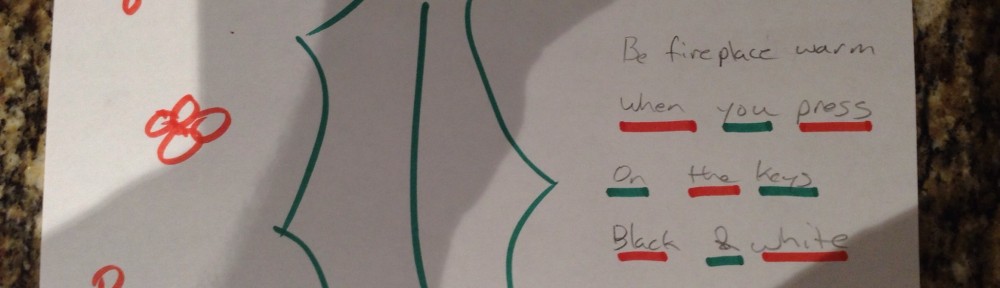 Be fireplace warm
when you press
On the keys
Black & white